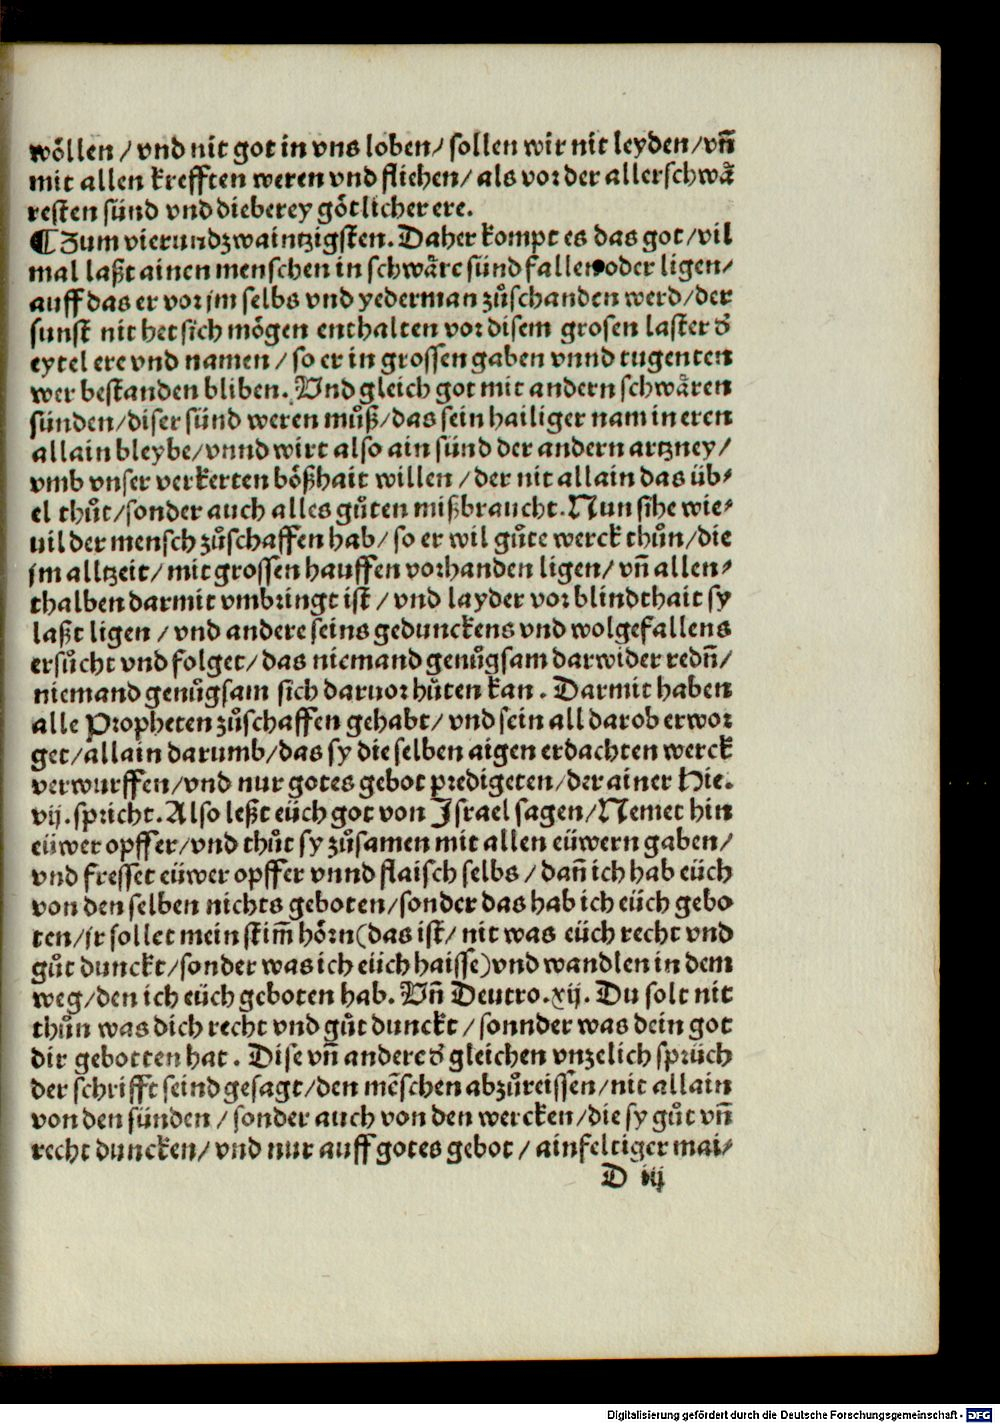 wöllen / vnd nit got in vns loben / sollen wir nit leyden / vn̄
mit allen krefften weren vnd fliehen / als vor der allerschwä
resten sünd vnd dieberey götlicher ere.
¶ Zum vierundzwaintzigsten. Daher kompt es das got / vil
mal laßt ainen menschen in schwäre sünd fallen oder ligen /
auff das er vor jm selbs vnd yederman zůschanden werd / der
sunst nit het sich mögen enthalten vor disem grosen laster d̕
eytel ere vnd namen / so er in grossen gaben vnnd tugenten
wer bestanden bliben. Vnd gleich got mit andern schwären
sünden / diser sünd weren můß / das sein hailiger nam in eren
allain bleybe / vnnd wirt also ain sünd der andern artzney /
vmb vnser verkerten bößhait willen / der nit allain das üb⸗
el thůt / sonder auch alles gůten mißbraucht. Nun sihe wie⸗
uil der mensch zůschaffen hab / so er wil gůte werck thůn / die
jm alltzeit / mit grossen hauffen vorhanden ligen / vn̄ allen⸗
thalben darmit vmbringt ist / vnd layder vor blindthait sy
laßt ligen / vnd andere seins gedunckens vnd wolgefallens
ersůcht vnd folget / das niemand genůgsam darwider redn̄ /
niemand genůgsam sich daruor hüten kan. Darmit haben
alle Propheten zůschaffen gehabt / vnd sein all darob erwor
get / allain darumb / das sy die selben aigen erdachten werck
verwurffen / vnd nur gotes gebot predigeten / der ainer Hie.
vij. spricht. Also leßt eüch got von Israel sagen / Nemet hin
eüwer opffer / vnd thůt sy zůsamen mit allen eüwern gaben /
vnd fresset eüwer opffer vnnd flaisch selbs / dan̄ ich hab eüch
von den selben nichts geboten / sonder das hab ich eüch gebo
ten / jr sollet mein stim̄ hörn (das ist / nit was eüch recht vnd
gůt dunckt / sonder was ich eüch haisse) vnd wandlen in dem
weg / den ich eüch geboten hab. Vn̄ Deutro. xij. Du solt nit
thůn was dich recht vnd gůt dunckt / sonnder was dein got
dir gebotten hat. Dise vn̄ andere d̕ gleichen vnzelich sprüch
der schrifft seind gesagt / den mēschen abzůreissen / nit allain
von den sünden / sonder auch von den wercken / die sy gůt vn̄
recht duncken / vnd nur auff gotes gebot / ainfeltiger mai⸗
D iij
Digitalisierung gefördert durch die Deutsche Forschungsgemeinschaft - DFG